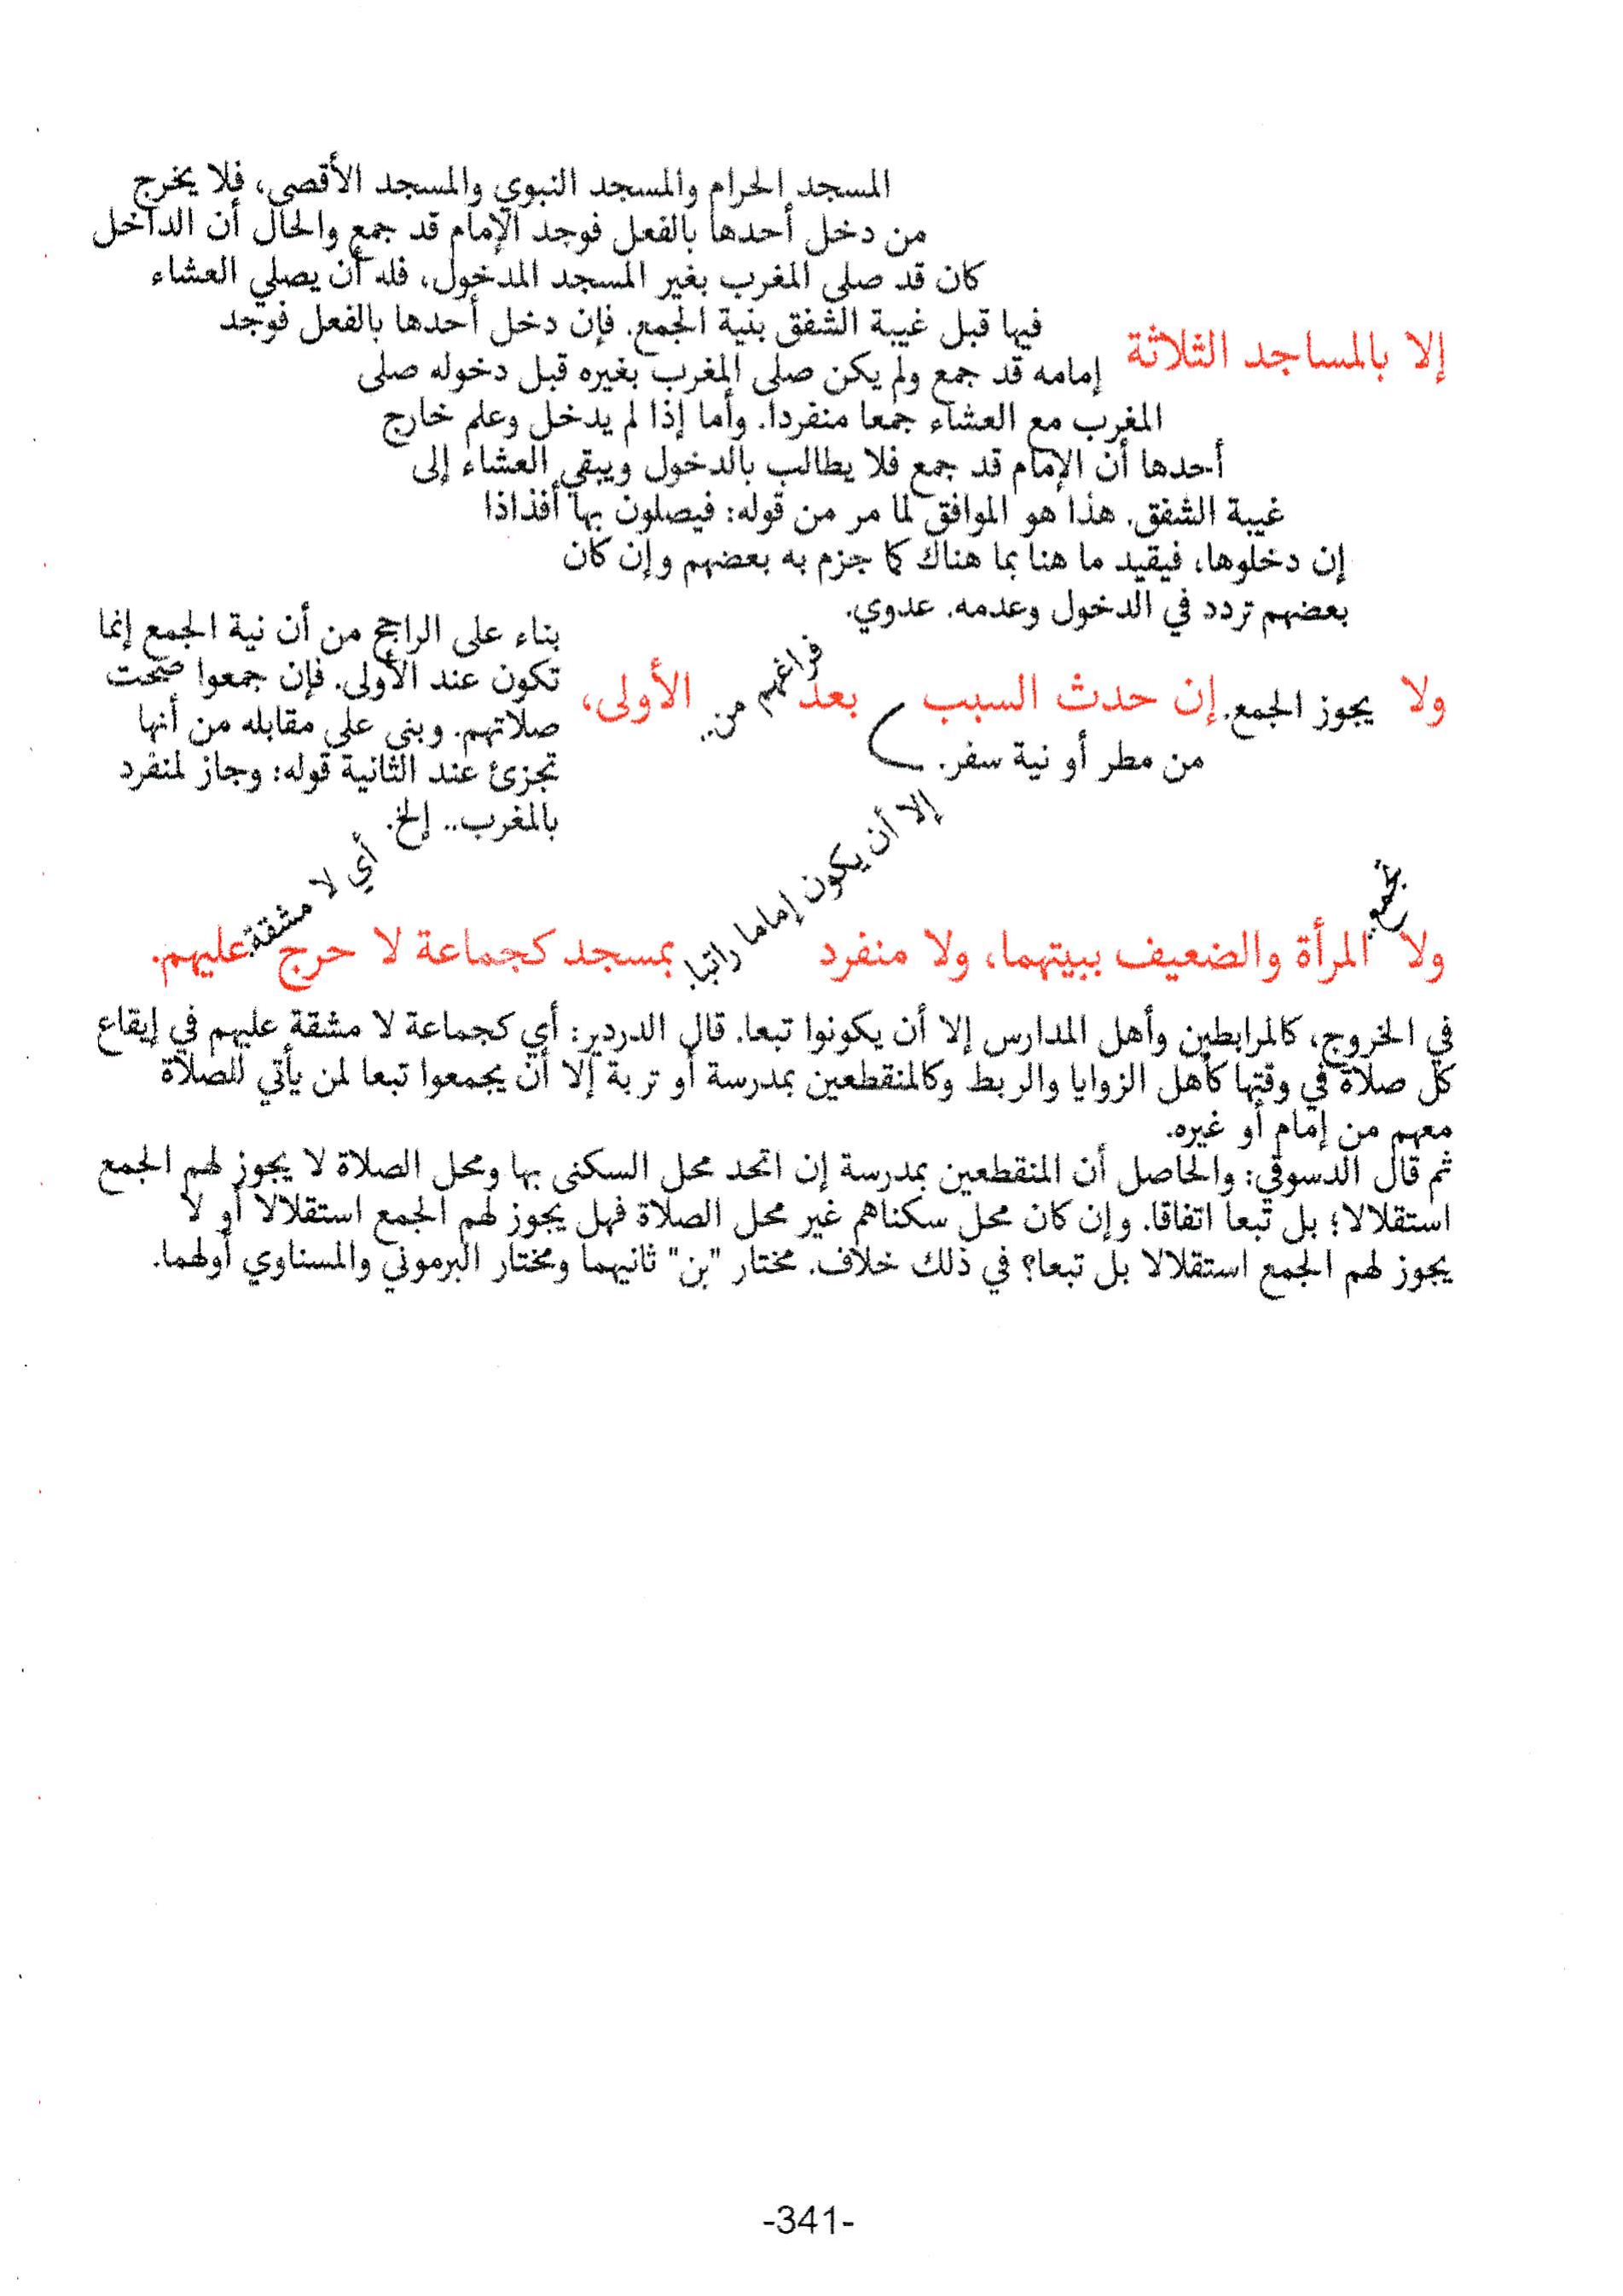 إلا بالمساجد الثلاثة
المسجد الحرام والمسجد النبوي والمسجد الأقصى، فلا يخرج
من دخل أحدها بالفعل فوجد الإمام قد جمع والحال أن الداخل
كان قد صلى المغرب بغير المسجد المدخول، فله أن يصلي العشاء
فيها قبل غيبة الشفق بنية الجمع. فإن دخل أحدها بالفعل فوجد
إمامه قد جمع ولم يكن صلى المغرب بغيره قبل دخوله صلى
المغرب مع العشاء جمعا منفردا. وأما إذا لم يدخل وعلم خارج
أحدها أن الإمام قد جمع فلا يطالب بالدخول ويبقي العشاء إلى
غيبة الشفق. هذا هو الموافق لما مر من قوله: فيصلون بها أفذاذا
إن دخلوها، فيقيد ما هنا بما هناك كما جزم به بعضهم وإن كان
بعضهم تردد في الدخول وعدمه. عدوي.
ولا يجوز الجمع. إن حدث السبب بعد فراغهم من.. الأولى،
من مطر أو نية سفر.
بناء على الراجح من أن نية الجمع إنما
تكون عند الأولى. فإن جمعوا صحت
صلاتهم. وبنى على مقابله من أنها
تجزئ عند الثانية قوله: وجاز لمنفرد
بالمغرب.. إلخ.
ولا تجمع. المرأة والضعيف ببيتهما، ولا منفرد إلا أن يكون إماما راتبا. بمسجد كجماعة لا حرج أي لا مشقة. عليهم.
في الخروج، كالمرابطين وأهل المدارس إلا أن يكونوا تبعا. قال الدردير: أي كجماعة لا مشقة عليهم في إيقاع
كل صلاة في وقتها كأهل الزوايا والربط وكالمنقطعين بمدرسة أو تربة إلا أن يجمعوا تبعا لمن يأتي للصلاة
معهم من إمام أو غيره.
ثم قال الدسوقي: والحاصل أن المنقطعين بمدرسة إن اتحد محل السكنى بها ومحل الصلاة لا يجوز لهم الجمع
استقلالا؛ بل تبعا اتفاقا. وإن كان محل سكناهم غير محل الصلاة فهل يجوز لهم الجمع استقلالا أو لا
يجوز لهم الجمع استقلالا بل تبعا؟ في ذلك خلاف. مختار "بن" ثانيهما ومختار البرموني والمسناوي أولهما.
-341-